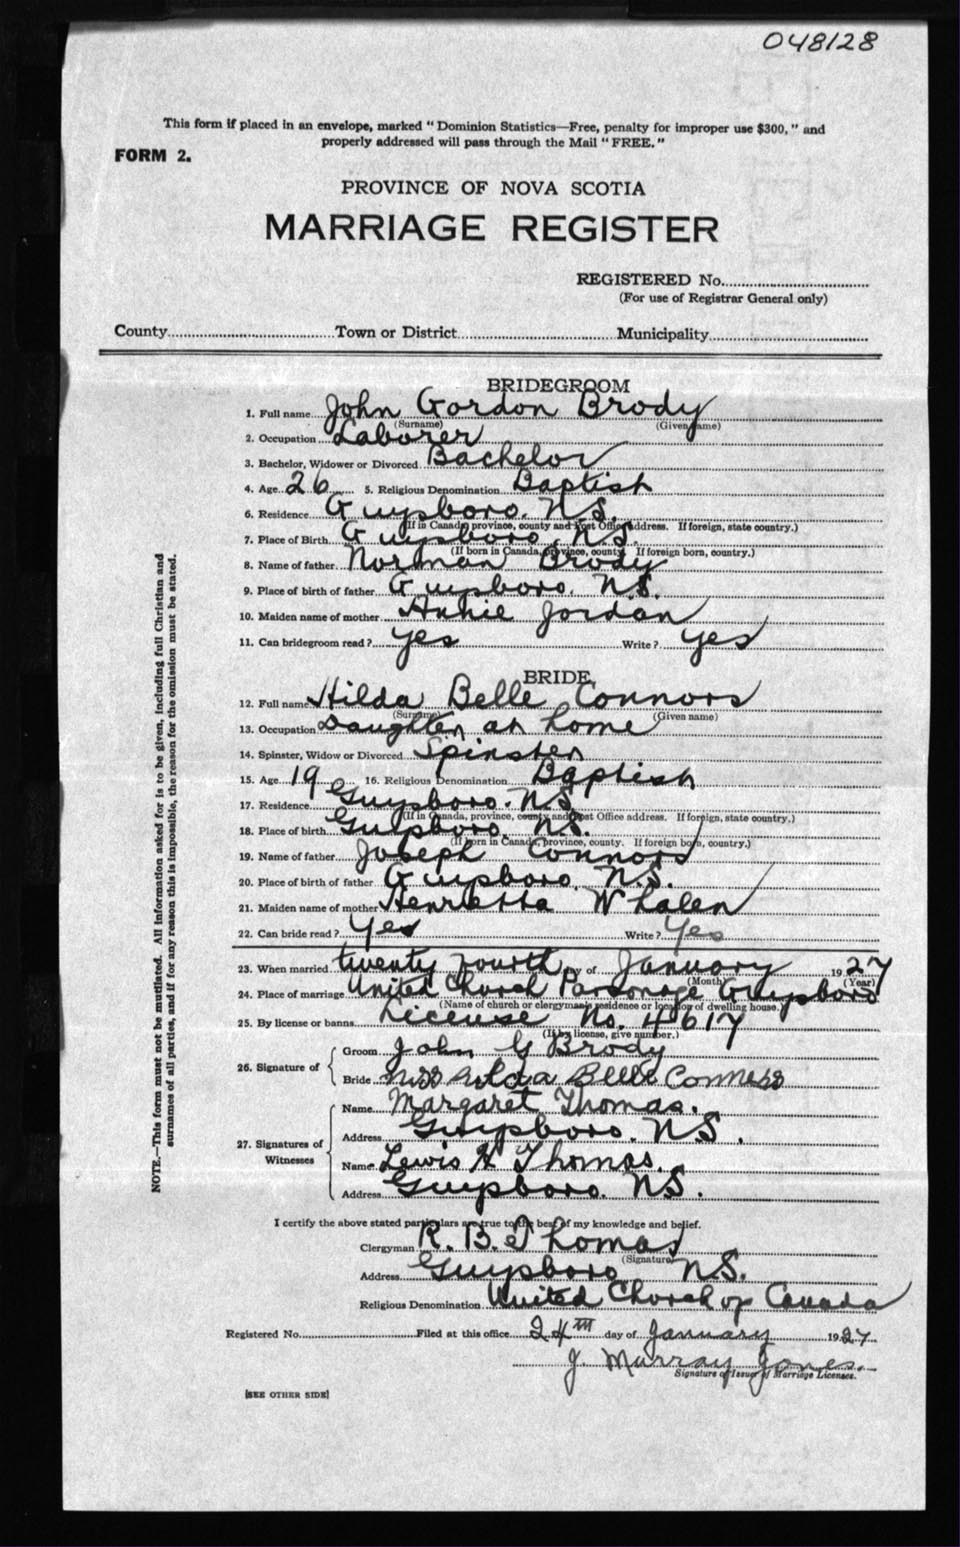 048128
This form if placed in an envelope, marked "Dominion Statistics—Free, penalty for improper use $300," and
properly addressed will pass through the Mail "FREE."
FORM 2.
PROVINCE OF NOVA SCOTIA
MARRIAGE REGISTER
REGISTERED No.
(For use of Registrar General only)
County Town or District Municipality
BRIDEGROOM
1. Full name John Gordon Brody
(Surname) (Given name)
2. Occupation Laborer
3. Bachelor, Widower or Divorced Bachelor
4. Age 26 5. Religious Denomination Baptist
6. Residence Guysboro. N.S.
(If in Canada, province, county and Post Office address. If foreign, state country.)
7. Place of Birth Guysboro, N.S.
(If born in Canada, province, county. If foreign born, country.)
8. Name of father Norman Brody
9. Place of birth of father Guysboro. N.S.
10. Maiden name of mother Annie Jordan
11. Can bridegroom read? Yes Write? Yes
BRIDE
12. Full name Hilda Belle Connors
(Surname) (Given name)
13. Occupation Daughter at home
14. Spinster, Widow or Divorced Spinster
15. Age 19 16. Religious Denomination Baptist
17. Residence Guysboro. N.S.
(If in Canada, province, county and Post Office address. If foreign, state country.)
18. Place of birth Guysboro, N.S.
(If born in Canada, province, county. If foreign born, country.)
19. Name of father Joseph Connors
20. Place of birth of father Guysboro, N.S.
21. Maiden name of mother Henrietta Whalen
22. Can bride read? Yes Write? Yes
23. When married twenty fourth day of January 1927
(Month) (Year)
24. Place of marriage United Church Parsonage Guysboro
(Name of church or clergyman's residence or location of dwelling house.)
25. By license or banns License No. 4617
(If by license, give number.)
26. Signature of
Groom John G Brody
Bride Miss Hilda Belle Conners
27. Signatures of Witnesses
Name Margaret Thomas.
Address Guysboro. N.S.
Name Lewis H Thomas.
Address Guysboro. N.S.
I certify the above stated particulars are true to the best of my knowledge and belief.
Clergyman R. B. Thomas
(Signature)
Address Guysboro N.S.
Religious Denomination United Church of Canada
Registered No. Filed at this office 24TH day of January 1927
J. Murray Jones.
Signature of Issuer of Marriage Licenses.
[SEE OTHER SIDE]
NOTE.—This form must not be mutilated. All information asked for is to be given, including full Christian and
surnames of all parties, and if for any reason this is impossible, the reason for the omission must be stated.